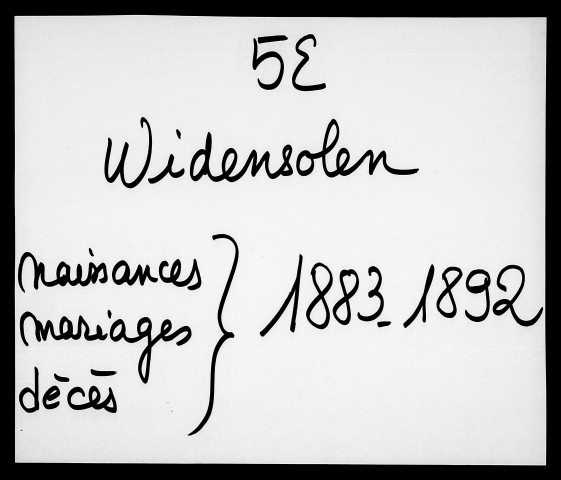 5E
Widensolen
naissances
mariages
décès
} 1883_1892